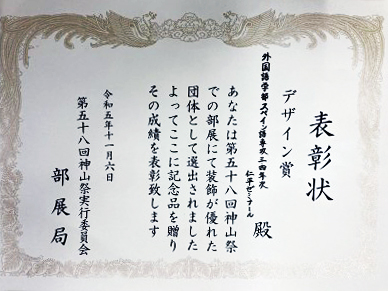 表彰状
デザイン賞
外国語学部 スペイン語専攻 三四年次
仁平ゼミナール
殿
あなたは第五十八回神山祭
での部展にて装飾が優れた
団体として選出されました
よってここに記念品を贈り
その成績を表彰致します
令和五年十一月六日
第五十八回神山祭実行委員会
部展局